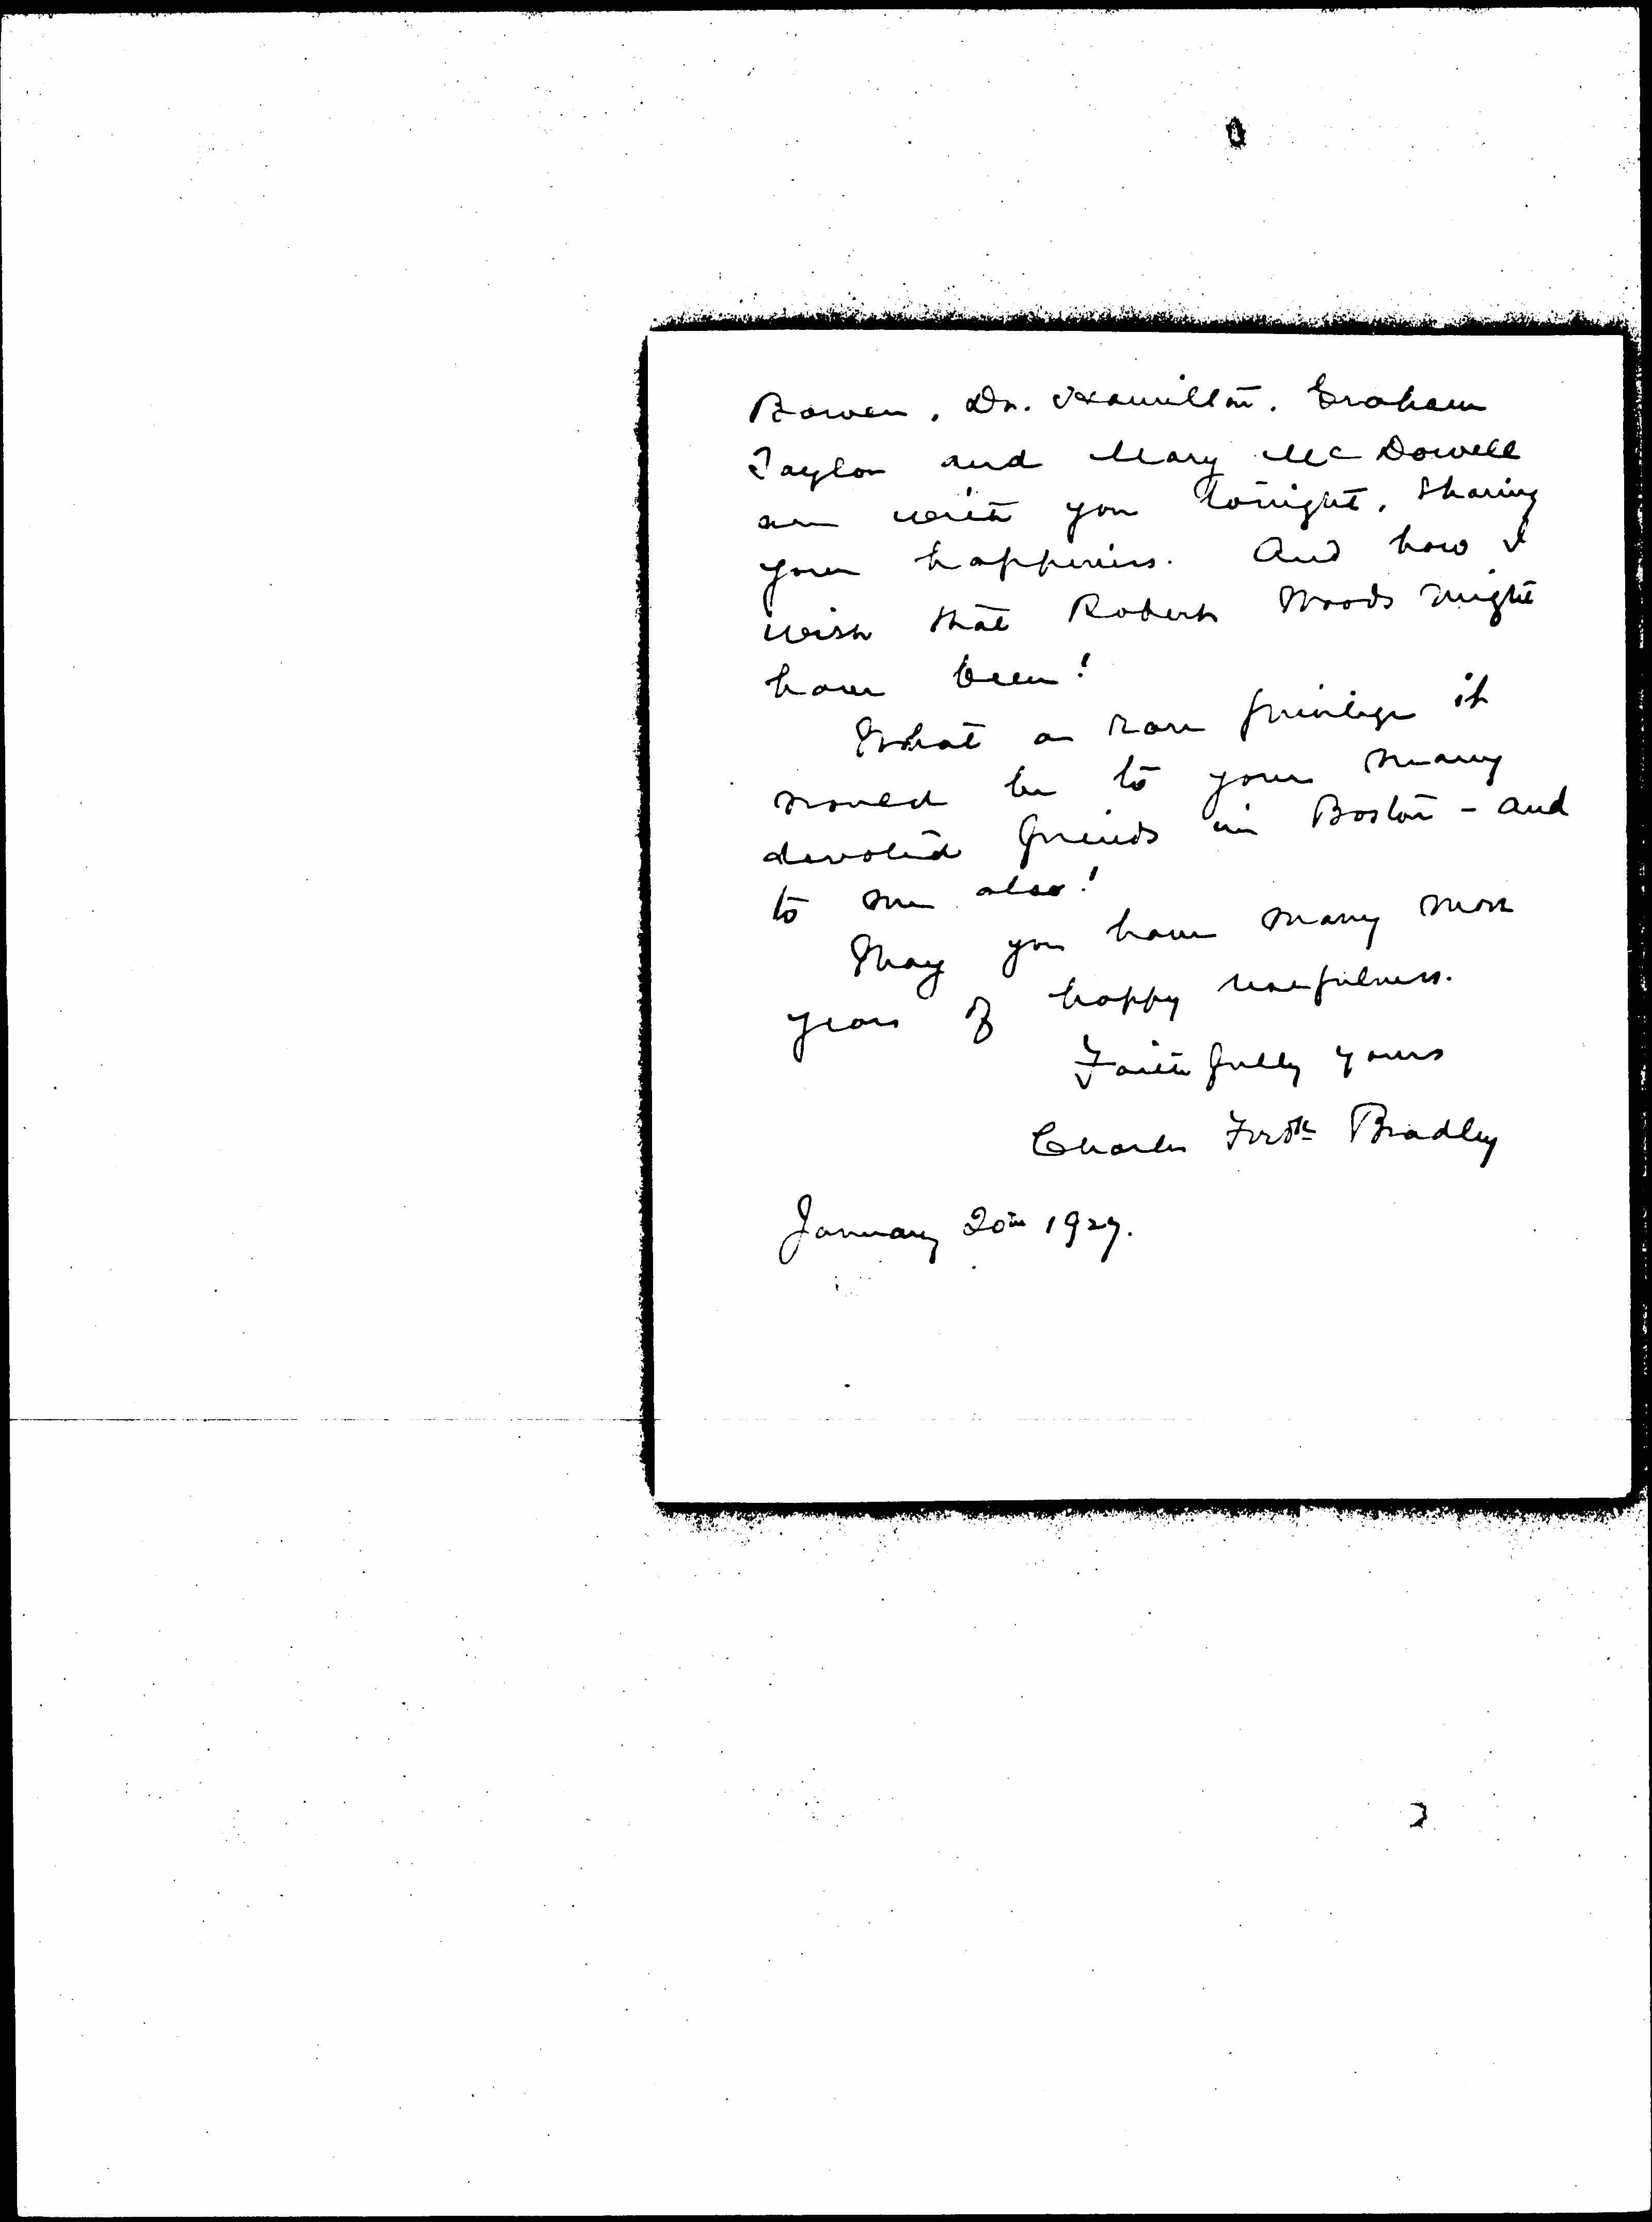 Bowen, Dr. Hamilton, Graham
Taylor and Mary McDowell
are with you tonight, sharing
your happiness. And how I
wish that Robert Woods might
have been!
What a rare privilege it
would be to your many
devoted friends in Boston - and
to me also!
May you have many more
years of happy usefulness.
Faithfully yours
Charles Bradley
January 20th 1927.